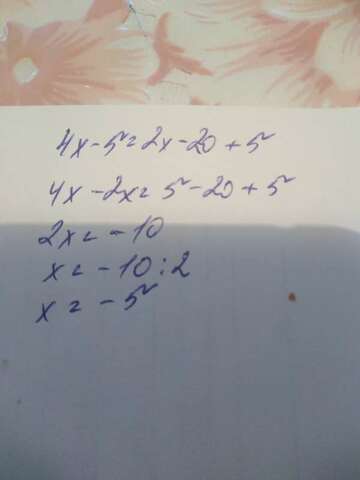 4x-5=2x-20+5
4x-2x=5-20+5
2x=-10
x=-10:2
x=-5